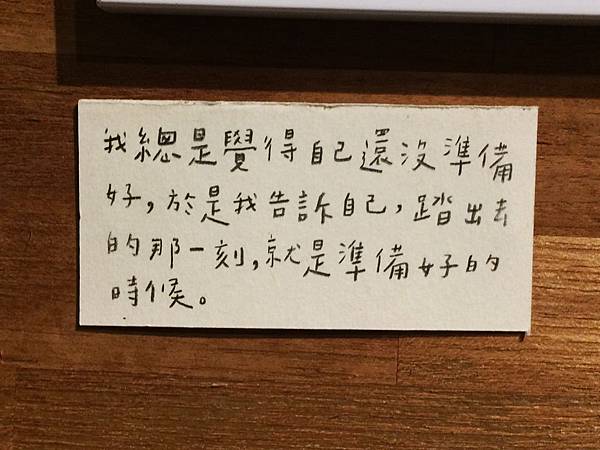 我總是覺得自己還沒準備
好，於是我告訴自己，踏出去
的那一刻，就是準備好的
時候。